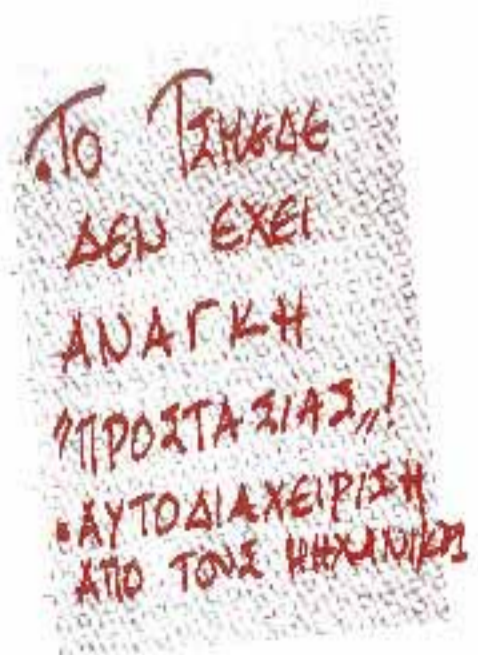 •ΤΟ ΤΣΜΕΔΕ
ΔΕΝ ΕΧΕΙ
ΑΝΑΓΚΗ
"ΠΡΟΣΤΑΣΙΑΣ„!
•ΑΥΤΟΔΙΑΧΕΙΡΙΣΗ
ΑΠΟ ΤΟΥΣ ΜΗΧΑΝΙΚΟΥΣ